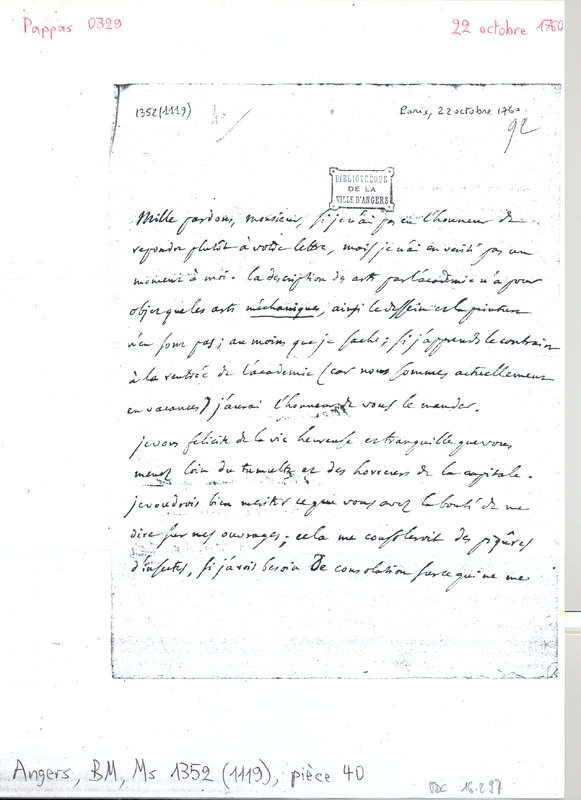 Pappas 0329
22 octobre 1760
1352 (1119)
Paris, 22 octobre 1760.
92
BIBLIOTHÈQUE
DE LA
VILLE D'ANGERS
Mille pardons, monsieur, si je n'ai pas eu l'honneur de
repondre plutôt à votre lettre, mais je n'ai en verité pas un
moment à moi. la description des arts par l'academie n'a pour
objet que les arts méchaniques, ainsi le dessein et la peinture
n'en sont pas; au moins que je sache; si j'apprends le contraire
à la rentrée de l'academie (car nous sommes actuellement
en vacances) j'aurai l'honneur de vous le mander.
je vous felicite de la vie heureuse et tranquille que vous
menez loin du tumulte et des horreurs de la capitale.
je voudrois bien meriter ce que vous avez la bonté de me
dire sur mes ouvrages; cela me consoleroit des piqûres
d'insectes, si j'avois besoin de consolation sur ce qui ne me
Angers, BM, Ms 1352 (1119), pièce 40
16.297